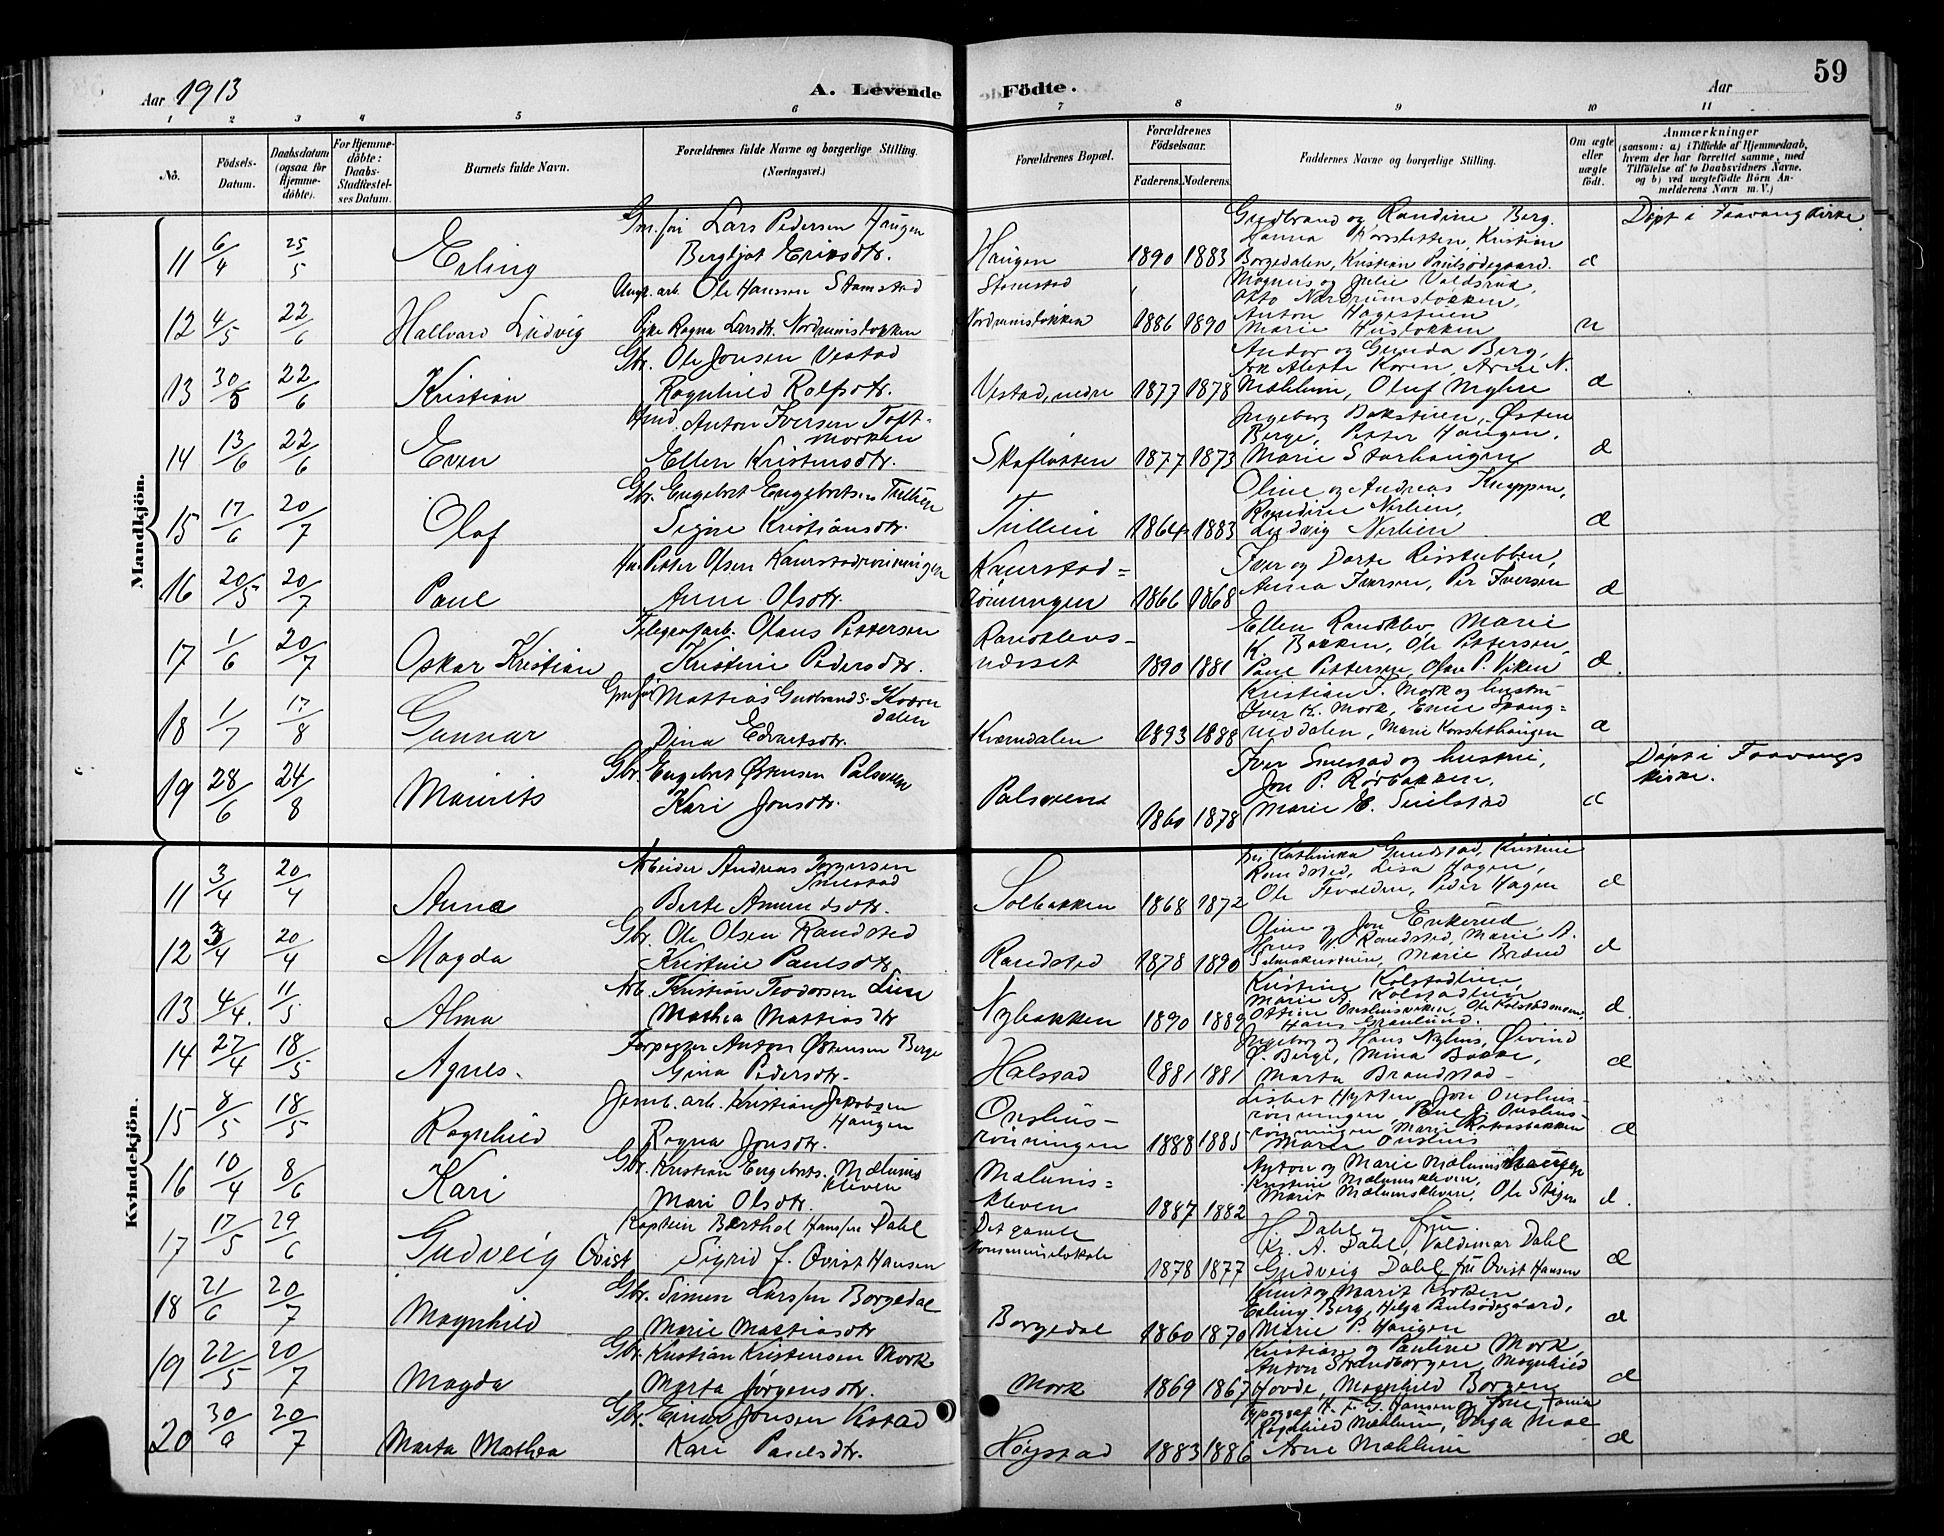 Aar 1913
A. Levende Födte.
Aar
59
1 2 3 4 5 6 7 8 9 10 11
No.
Födsels-Datum.
Daabsdatum (ogsaa for Hjemmedöbte).
For Hjemmedöbte: Daabs-Stadfæstelses Datum.
Barnets fulde Navn.
Forældrenes fulde Navne og borgerlige Stilling. (Næringsvei.)
Forældrenes Bopæl.
Forældrenes Födselsaar.
Faderens. Moderens.
Faddernes Navne og borgerlige Stilling.
Om ægte eller uægte födt.
Anmærkninger (saasom: a) i Tilfælde af Hjemmedaab, hvem der har forrettet samme, med Tilföielse af to Daabsvidners Navne, og b) ved uægtefödte Börn Anmelderens Navn m. V.)
Mandkjön.
11 6/4 25/5 Erling
Lars Pedersen Haugen
Bergljot Eriksdtr.
Haugen 1890 1883
Gudbrand og Randine Berg.
Kristian
Borgedalen, Kristian Paulsødegaard. d
Døpt i Faavang kirke
12 4/5 22/6 Hallvard Ludvig
Ungk. arb. Ole Hansen Stamstad
Pike Ragna Larsdtr. Nordrumsløkken
Stamstad
Nordrumsløkken 1886 1890
Magnus og Julie
Otto Nordrumsløkken,
Anton Hagestuen
Marie Husløkken u
13 30/5 22/6 Kristian
Gbr. Ole Jonsen Vestad
Ragnhild Rolfsdtr.
Vestad, nedre 1877 1878
Andor og Gunda Berg,
Arne N.
Mæhlum, Oluf Myhre d
14 13/6 22/6 Even
Anton Iversen Toft-
morken
Ellen Kristensdtr.
Skafløtten 1877 1873
Ingeborg Bakstuen, Østen
Berge, Petter Haugen,
Marie Storhaugen d
15 17/6 20/7 Olaf
Gbr. Engebret Engebretsen Tullien
Signe Kristiansdtr.
Tullien 1864 1883
Oline og Andreas Knappen,
Randine Nerlien,
Ludvig Nerlien d
16 20/5 20/7 Paul
Petter Olsen Kaurstadrønningen
Anne Olsdtr.
Kaurstad=
rønningen 1866 1868
Iver og Dorte Risstubben,
Anna Iversen, Per Iversen d
17 1/6 20/7 Oskar Kristian
Telegrafarb. Olaus Pettersen
Kristine Pedersdtr.
Randklevs-
næsset 1890 1881
Ellen Randklev Marie
K. Bakken, Ole Pettersen,
Paul Pettersen, Olav P. Viken d.
18 1/7 17/8 Gunnar
Mattias Gudbrands. Kværn
dalen
Dina Edvartsdtr.
Kværndalen 1893 1888
Kristian T. Mork og hustru
Iver K. Mork,
Marie Korslethaugen d
19 28/6 24/8 Maurits
Gbr. Engebret Østensen Palsveen
Kari Jonsdtr.
Palsveen 1860 1878
Iver Smestad og hustru,
Jon P. Rørbakken,
Marie E. d
Døpt i Faavangs
kirke.
Kvindekjön.
11 3/4 20/4 Anna
Arbeider Andreas Jørgensen
Smestad
Berte Amundsdtr.
Solbakken 1868 1872
Gundstad, Kristine
Randsted, Lisa Hagen,
Ole Tevolden, Peder Hagen d
12 3/4 20/4 Magda
Gbr. Ole Olsen Randsted
Kristine Paulsdtr.
Randsted 1878 1890
Oline og Jon Enkerud
Randsted, Marie A.
Marie Brænd d
13 4/4. 11/5 Alma
Arb. Kristian Teodorsen Lien
Mathea Mattiasdtr
Nybakken 1890 1889
Kristine Kolstadlien,
Marie A. Kolstadlien,
Hans Grønlund. d.
14 27/4 18/5 Agnes.
Forpagter Anton Østensen Berge
Gina Pedersdtr.
Holstad 1881 1881
Ingeborg og Hans Nyhus, Øivind
Ø. Berge, Mina Bakke,
Marta Brandstad d
15 8/5 18/5 Ragnhild
Jernb. arb. Kristian Jakobsen
Haugen
Ragna Jonsdtr.
Onslius-
rønningen 1888 1885
Lisbet Hytten, Jon Onslius-
rønningen, Paul J. Onslius-
rønningen,
Marta Onslius d
16 10/4 8/6 Kari
Gbr. Kristian Engebrets. Mælums
kleven
Mari Olsdtr.
Mælums=
kleven 1887 1882
Anton og Marie
Kristine Mælumskleven,
Marit Mælumskleven, Ole Stigen d.
17 17/5 29/6 Gudveig Qvist
Kaptein Berthol Hansen Dahl
Sigrid f. Qvist Hansen
Det gamle
kommunelokale 1878 1877
H. Dahl og frue
A. Dahl, Valdemar Dahl
Gudveig Dahl, fru Qvist Hansen d
18 21/6 20/7 Magnhild
Gbr. Simen Larssen Borgedal
Marie Mattiasdtr
Borgedal 1860 1870
Knut og Marit
Erling Berg, Helga Paulsødegaard,
Marie P. Haugen d
19 22/5 20/7 Magda
Gbr. Kristian Kristensen Mork
Marta Jørgensdtr.
Mork 1869 1867
Kristian og Pauline Mork,
Anton Strandborgen, Magnhild
Hovde, Magnhild Borgen d
20 30/6 20/7 Marta Mathea
Gbr. Einar Jonsen Vestad
Kari Paulsdtr.
Høystad 1883 1886
Typograf H. F. G. Hansen og frue,
Ragnhild Mæhlum, Inga Moe
Arne Mæhlum d